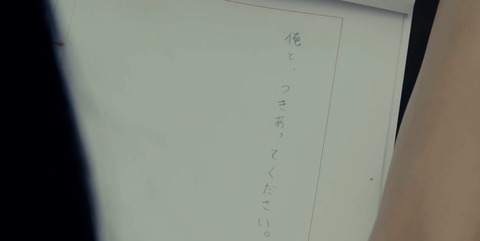 俺と、つきあってください。